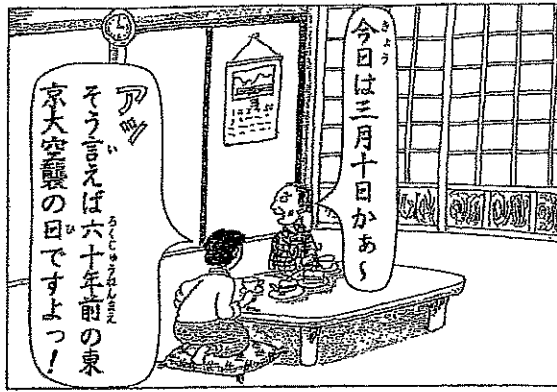 今日は三月十日かぁ～
アッ
そう言えば六十年前の東
京大空襲の日ですよっ！